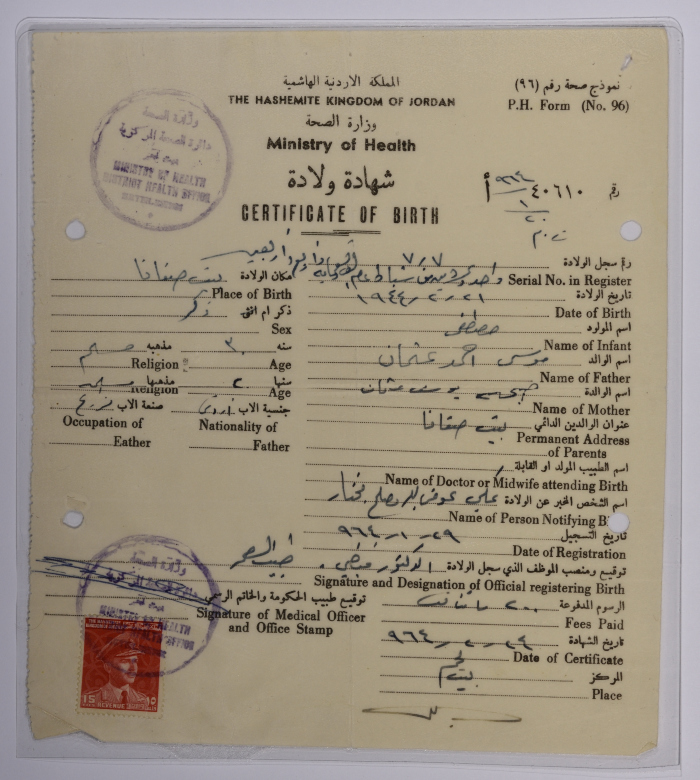 المملكة الاردنية الهاشمية
نموذج صحة رقم (٩٦)
THE HASHEMITE KINGDOM OF JORDAN
P.H. Form (No. 96)
وزارة الصحة
Ministry of Health
شهادة ولادة
رقم ٤٠٦١٠ أ
CERTIFICATE OF BIRTH
وزارة الصحة
دائرة الصحة المركزية
بيت لحم
MINISTRY OF HEALTH
DISTRICT HEALTH OFFICE
رقم سجل الولادة ٧/٧
Serial No. in Register
مكان الولادة بيت صفافا
Place of Birth
تاريخ الولادة ٢١-٢-١٩٤٤
Date of Birth
ذكر ام انثى ذكر
Sex
اسم المولود مصطفى
Name of Infant
سنه ٣٠ مذهبه مسلم
Religion Age
اسم الوالد موسى احمد عثمان
Name of Father
سنها مذهبها
Religion Age
اسم الوالدة يوسف عثمان
Name of Mother
جنسية الاب اردني صنعة الاب
Occupation of Nationality of
Eather Father
عنوان الوالدين الدائمي بيت صفافا
Permanent Address
of Parents
اسم الطبيب المولد او القابلة
Name of Doctor or Midwife attending Birth
اسم الشخص المخبر عن الولادة علي عوض مختار
Name of Person Notifying Bi
تاريخ التسجيل ٢٩-١-٩٦٤
Date of Registration
توقيع ومنصب الموظف الذي سجل الولادة الدكتور طبيب
Signature and Designation of Official registering Birth
وزارة الصحة
MINISTRY OF HEALTH
DISTRICT HEALTH OFFICE
توقيع طبيب الحكومة والخاتم الرسمي
Signature of Medical Officer
and Office Stamp
الرسوم المدفوعة ٢٠٠
Fees Paid
تاريخ الشهادة ٩٦٤
Date of Certificate
المركز بيت لحم
Place
15 REVENUE ١٥